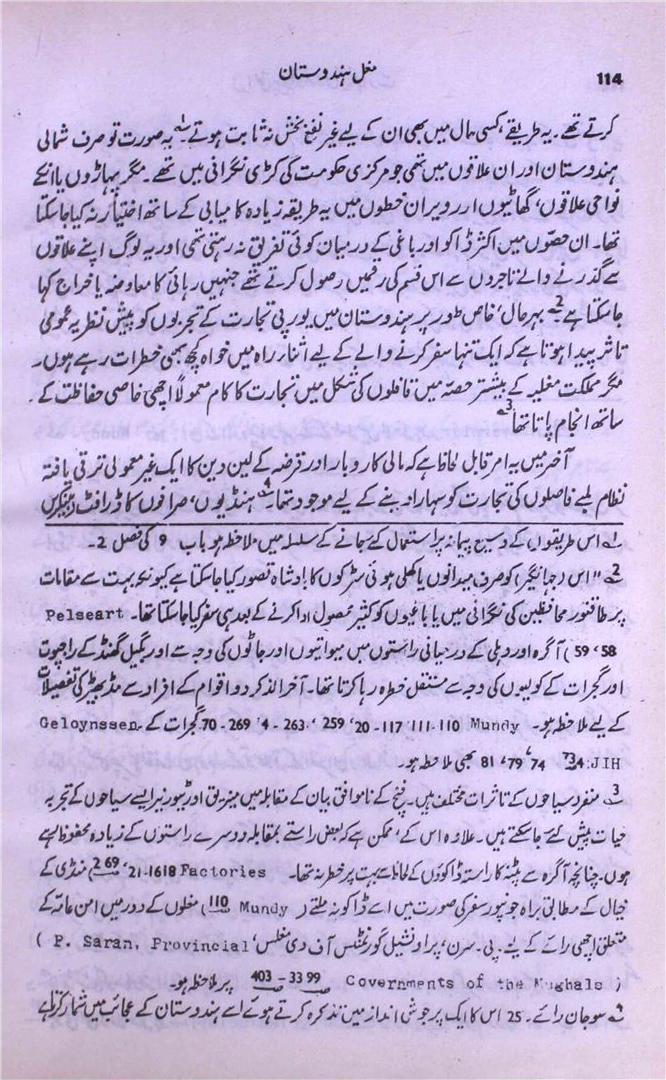 114 مغل ہندوستان
کرتے تھے۔ یہ طریقے، کسی حال میں بھی ان کے لیے غیر نفع بخش نہ ثابت ہوتے۔1 یہ صورت تو صرف شمالی
ہندوستان اور ان علاقوں میں تھی جو مرکزی حکومت کی کڑی نگرانی میں تھے۔ مگر پہاڑوں یا انکے
نواحی علاقوں، گھاٹیوں اور ویران خطوں میں یہ طریقہ زیادہ کامیابی کے ساتھ اختیار نہ کیا جاسکتا
تھا۔ ان حصّوں میں اکثر ڈاکو اور باغی کے درمیان کوئی تفریق نہ رہتی تھی اور یہ لوگ اپنے علاقوں
سے گذرنے والے تاجروں سے اس قسم کی رقمیں وصول کرتے تھے جنہیں رہائی کا معاوضہ یا خراج کہا
جاسکتا ہے2 بہرحال، خاص طور پر ہندوستان میں یورپی تجارت کے تجربوں کو پیش نظر یہ عمومی
تاثر پیدا ہوتا ہے کہ ایک تنہا سفر کرنے والے کے لیے اثناء راہ میں خواہ کچھ بھی خطرات رہے ہوں۔
مگر مملکت مغلیہ کے بیشتر حصّہ میں قافلوں کی شکل میں تجارت کا کام معمولاً اچھی خاصی حفاظت کے
ساتھ انجام پاتا تھا3
آخر میں یہ امر قابل لحاظ ہے کہ مالی کاروبار اور قرضہ کے لین دین کا ایک غیر معمولی ترقی یافتہ
نظام لمبے فاصلوں کی تجارت کو سہارا دینے کے لیے موجود تھا۔4 ہنڈیوں، صرافوں کا ڈرافٹ، بینکرس
1 اس طریقوں کے وسیع پیمانہ پر استعمال کئے جانے کے سلسلہ میں ملاحظہ ہو باب 9 کی فصل 2۔
2 "اس (جہانگیر) کو صرف میدانوں یا کھلی ہوئی سڑکوں کا بادشاہ تصور کیا جاسکتا ہے کیونکہ بہت سے مقامات
پر طاقتور محافظین کی نگرانی میں یا باغیوں کو کثیر محصول ادا کرنے کے بعد ہی سفر کیا جاسکتا تھا۔ Pelseart
58، 59 ) آگرہ اور دہلی کے درمیانی راستوں میں میواتیوں اور جاٹوں کی وجہ سے اور بگیل کھنڈ کے راجپوت
اور گجرات کے کولیوں کی وجہ سے مستقل خطرہ رہا کرتا تھا۔ آخر الذکر دو اقوام کے افراد سے مڈبھیڑ کی تفصیلات
کے لیے ملاحظہ ہو۔ Mundy 110-111، 117-20، 259، 263-4، 269-70 گجرات کے۔ Geloynssen
JIH: 734 74، 79، 81 بھی ملاحظہ ہو۔
3 منفرد سیاحوں کے تاثرات مختلف ہیں۔ فنچ کے ناموافق بیان کے مقابلہ میں مینریق اور ٹیورنیر ایسے سیاحوں کے تجربہ
حیات پیش کئے جاسکتے ہیں۔ علاوہ اس کے، ممکن ہے کہ بعض راستے بمقابلہ دوسرے راستوں کے زیادہ محفوظ رہے
ہوں۔ چنانچہ آگرہ سے پٹنہ کا راستہ ڈاکوؤں کے لحاظ سے بہت پر خطر نہ تھا۔ Factories 1618-21، 269) منڈی کے
خیال کے مطابق براہ جونپور سفر کی صورت میں اسے ڈاکو نہ ملتے ( Mundy 110) مغلوں کے دور میں امن عامّہ کے
متعلق اچھی رائے کے لیے۔ پی۔ سرن، پراونشیل گورنمنٹس آف دی مغلس، P. Saran, Provincial (
Governments of the Mughals ) 399-403 پر ملاحظہ ہو۔
4 سوجان رائے۔ 25 اس کا ایک پرجوش انداز میں تذکرہ کرتے ہوئے اسے ہندوستان کے عجائب میں شمار کرتا ہے